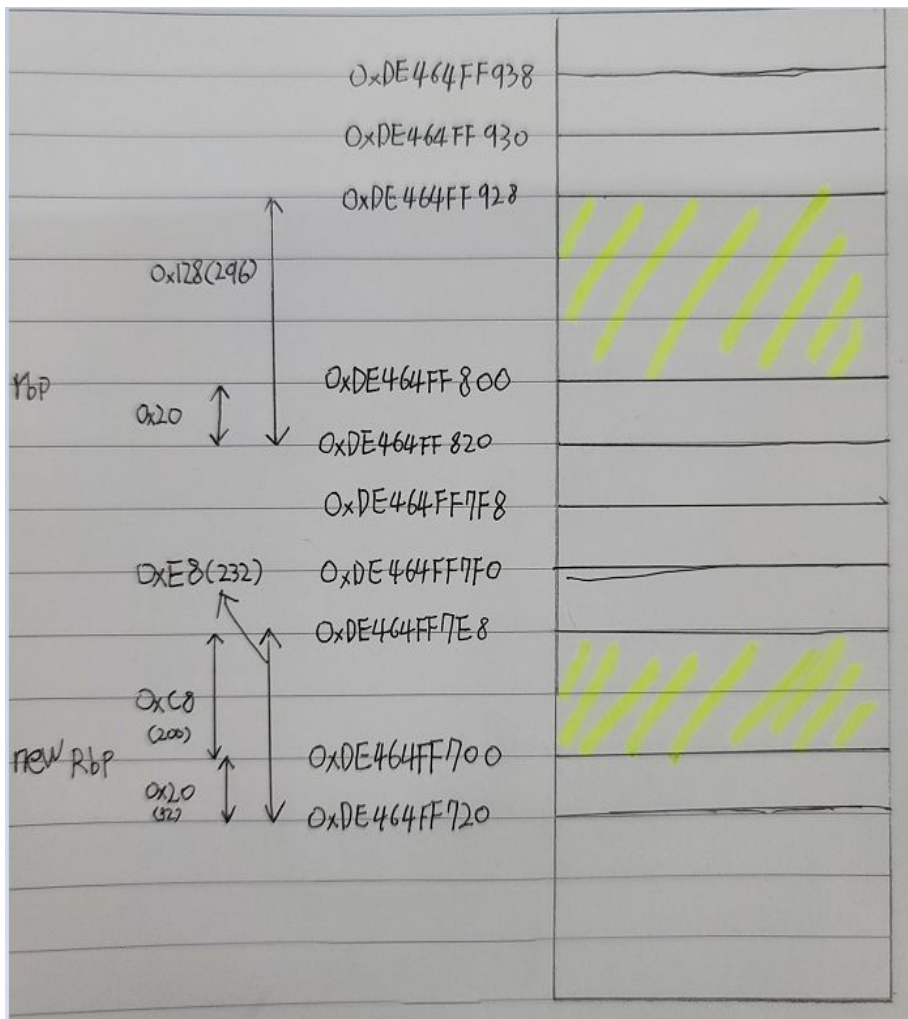 0xDE464FF938
0xDE464FF930
0xDE464FF928
0x128(296)
rbp
0xDE464FF800
0x20
0xDE464FF820
0xDE464FF7F8
0xE8(232)
0xDE464FF7F0
0xDE464FF7E8
0xC8
(200)
new Rbp
0xDE464FF700
0x20
(32)
0xDE464FF720